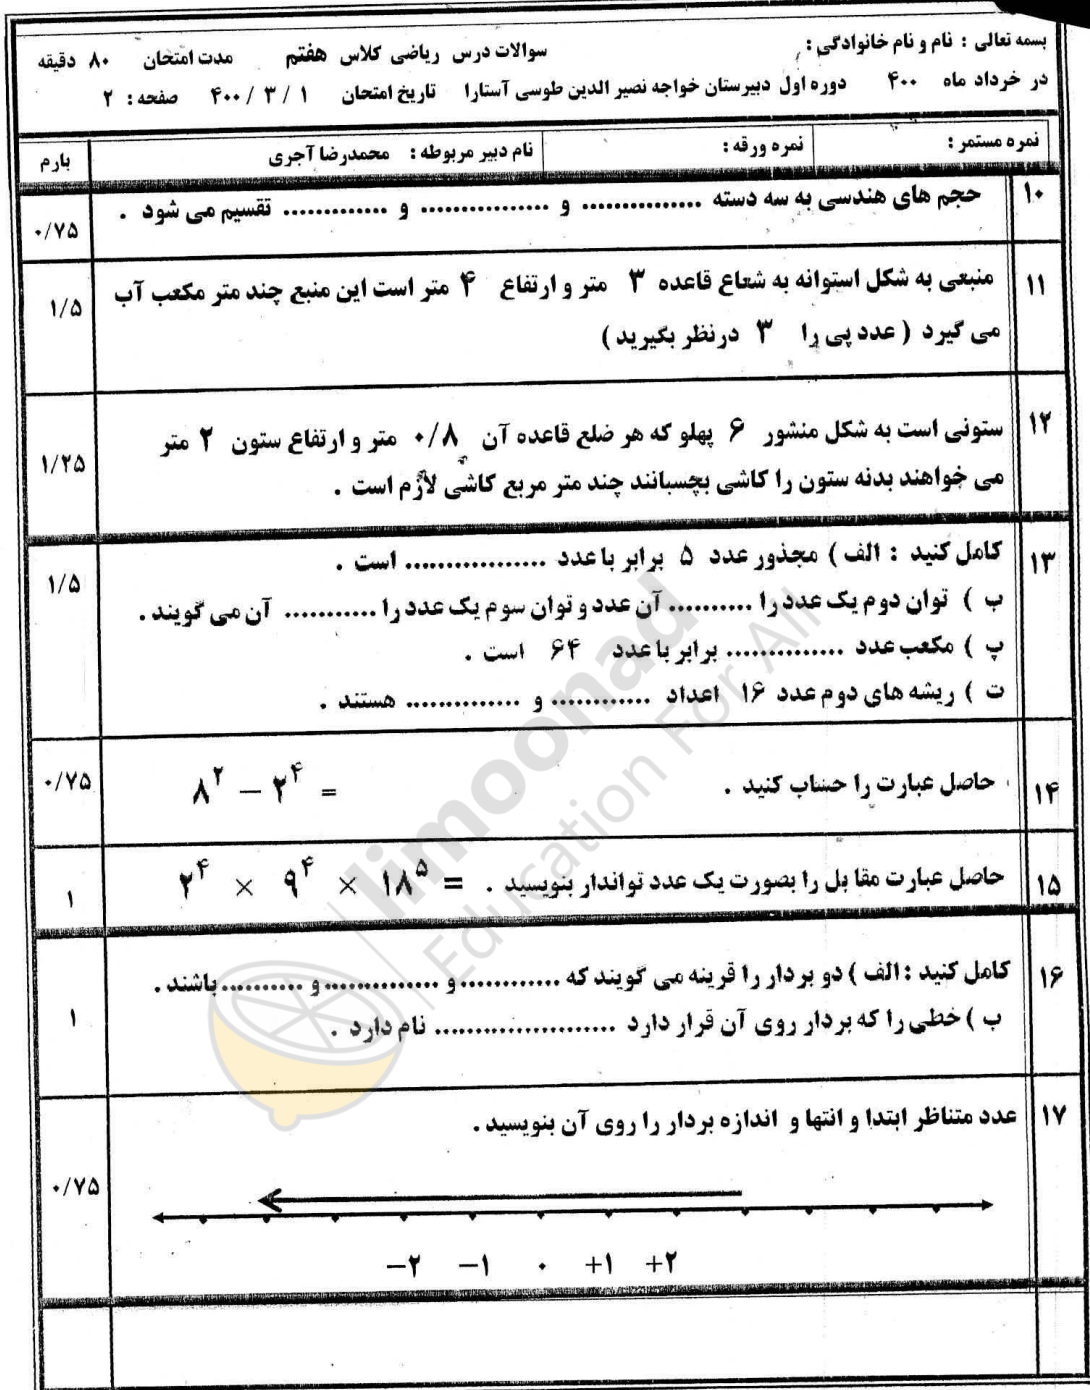 بسمه تعالی : نام و نام خانوادگی : سوالات درس ریاضی کلاس هفتم مدت امتحان ۸۰ دقیقه
در خرداد ماه ۴۰۰ دوره اول دبیرستان خواجه نصیر الدین طوسی آستارا تاریخ امتحان ۱ / ۳ / ۴۰۰ صفحه : ۲
نمره مستمر : نمره ورقه : نام دبیر مربوطه : محمدرضا آجری بارم
۱۰ حجم های هندسی به سه دسته ............... و ................ و ............. تقسیم می شود . ۰/۷۵
۱۱ منبعی به شکل استوانه به شعاع قاعده ۳ متر و ارتفاع ۴ متر است این منبع چند متر مکعب آب ۱/۵
می گیرد ( عدد پی را ۳ درنظر بگیرید )
۱۲ ستونی است به شکل منشور ۶ پهلو که هر ضلع قاعده آن ۰/۸ متر و ارتفاع ستون ۲ متر ۱/۲۵
می خواهند بدنه ستون را کاشی بچسبانند چند متر مربع کاشی لازم است .
۱۳ کامل کنید : الف ) مجذور عدد ۵ برابر با عدد .................. است . ۱/۵
ب ) توان دوم یک عدد را .......... آن عدد و توان سوم یک عدد را ........... آن می گویند .
پ ) مکعب عدد ............... برابر با عدد ۶۴ است .
ت ) ریشه های دوم عدد ۱۶ اعداد ............ و .............. هستند .
۱۴ حاصل عبارت را حساب کنید . ۸² − ۲⁴ = ۰/۷۵
۱۵ حاصل عبارت مقا بل را بصورت یک عدد تواندار بنویسید . ۲⁴ × ۹⁴ × ۱۸⁵ = ۱
۱۶ کامل کنید : الف ) دو بردار را قرینه می گویند که ............ و .............. و .......... باشند . ۱
ب ) خطی را که بردار روی آن قرار دارد ...................... نام دارد .
۱۷ عدد متناظر ابتدا و انتها و اندازه بردار را روی آن بنویسید . ۰/۷۵
−۲ −۱ ۰ +۱ +۲
limoonad
Education For All